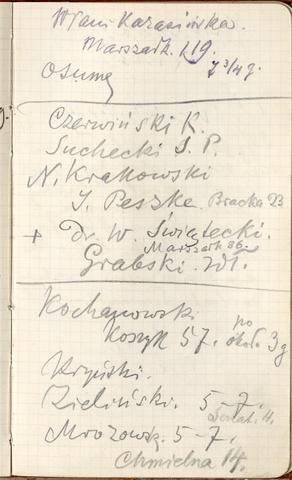 Karasińska.
Marszałk. 119.
7 3/4 g.
Czerwiński K.
Suchecki S. P.
N. Krakowski
J. Peszke. Bracka 23
+ Dr. W. Świątecki.
Marszałk 86
Grabski. Wł.
Kochanowski
Koszyk 57. po
około 3 g
Kryński.
Zieliński. 5-7.
Mrozowsk. 5-7.
Chmielna 14.